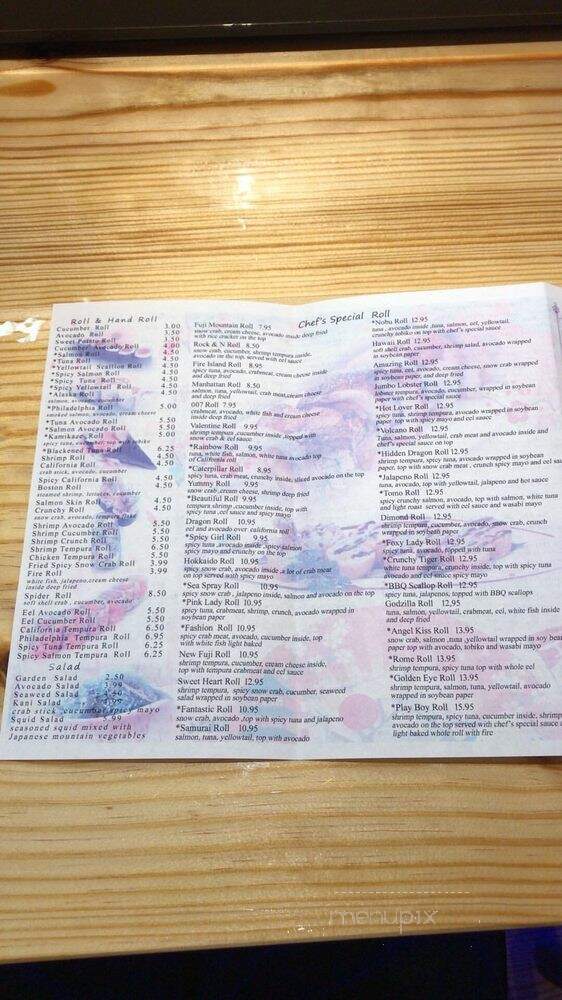 Roll & Hand Roll
Cucumber Roll 3.00
Avocado Roll 3.50
Sweet Potato Roll 3.50
Cucumber Avocado Roll 4.00
*Salmon Roll 4.50
*Tuna Roll 4.50
*Yellowtail Scallion Roll 4.50
*Spicy Salmon Roll 4.50
*Spicy Tuna Roll 4.50
*Spicy Yellowtail Roll 4.50
*Alaska Roll 4.50
salmon, avocado, cucumber
*Philadelphia Roll 5.00
smoked salmon, avocado, cream cheese
*Tuna Avocado Roll 5.50
*Salmon Avocado Roll 5.50
*Kamikaze Roll 5.00
spicy tuna, cucumber, top with tobiko
*Blackened Tuna Roll 6.25
Shrimp Roll 4.50
California Roll 4.50
crab stick, avocado, cucumber
Spicy California Roll 4.50
Boston Roll 4.50
steamed shrimp, lettuce, cucumber
Salmon Skin Roll 4.50
Crunchy Roll 4.50
snow crab, avocado, tempura flake
Shrimp Avocado Roll 5.50
Shrimp Cucumber Roll 5.50
Shrimp Crunch Roll 5.50
Shrimp Tempura Roll 6.50
Chicken Tempura Roll 5.50
Fried Spicy Snow Crab Roll 3.99
Fire Roll 3.99
white fish, jalapeno,cream cheese
inside deep fried
Spider Roll 8.50
soft shell crab , cucumber, avocado
Eel Avocado Roll 5.50
Eel Cucumber Roll 5.50
California Tempura Roll 6.50
Philadelphia Tempura Roll 6.95
Spicy Tuna Tempura Roll 6.25
Spicy Salmon Tempura Roll 6.25
Salad
Garden Salad 2.50
Avocado Salad 3.99
Seaweed Salad 4.50
Kani Salad 4.99
crab stick ,cucumber,spicy mayo
Squid Salad 5.99
seasoned squid mixed with
Japanese mountain vegetables
Chef's Special Roll
Fuji Mountain Roll 7.95
snow crab, cream cheese, avocado inside deep fried
with rice cracker on the top
Rock & N Roll 8.50
snow crab, cucumber, shrimp tempura inside,
avocado on the top, served with eel sauce
Fire Island Roll 8.95
spicy tuna, avocado, crabmeat, cream cheese inside
and deep fried
Manhattan Roll 8.50
salmon, tuna, yellowtail, crab meat,cream cheese
and deep fried
007 Roll 7.95
crabmeat, avocado, white fish and cream cheese
inside deep fried
Valentine Roll 9.95
shrimp tempura ,cucumber inside ,topped with
snow crab & eel sauce
*Rainbow Roll 9.95
tuna, white fish, salmon, white tuna avocado top
of California roll
*Caterpillar Roll 8.95
spicy tuna, crab meat, crunchy inside, sliced avocado on the top
Yummy Roll 9.95
snow crab ,cream cheese, shrimp deep fried
*Beautiful Roll 9.95
tempura shrimp ,cucumber inside, top with
spicy tuna ,eel sauce and spicy mayo
Dragon Roll 10.95
eel and avocado over california roll
*Spicy Girl Roll 9.95
spicy tuna ,avocado inside ,spicy salmon
spicy mayo and crunchy on the top
Hokkaido Roll 10.95
spicy snow crab, avocado inside ,a lot of crab meat
on top served with spicy mayo
*Sea Spray Roll 10.95
spicy snow crab , jalapeno inside, salmon and avocado on the top
*Pink Lady Roll 10.95
spicy tuna, crabmeat, shrimp, crunch, avocado wrapped in
soybean paper
*Fashion Roll 10.95
spicy crab meat, avocado, cucumber inside, top
with white fish light baked
New Fuji Roll 10.95
shrimp tempura, cucumber, cream cheese inside,
top with tempura crabmeat and eel sauce
Sweet Heart Roll 12.95
shrimp tempura, spicy snow crab, cucumber, seaweed
salad wrapped in soybean paper
*Fantastic Roll 10.95
snow crab, avocado ,top with spicy tuna and jalapeno
*Samurai Roll 10.95
salmon, tuna, yellowtail, top with avocado
*Nobu Roll 12.95
tuna , avocado inside ,tuna, salmon, eel, yellowtail,
crunchy tobiko on top with chef's special sauce
Hawaii Roll 12.95
soft shell crab, cucumber, shrimp salad, avocado wrapped
in soybean paper
Amazing Roll 12.95
spicy tuna, eel, avocado, cream cheese, snow crab wrapped
in soybean paper, and deep fried
Jumbo Lobster Roll 12.95
lobster tempura, avocado, cucumber, wrapped in soybean
with chef's special sauce
*Hot Lover Roll 12.95
spicy tuna, shrimp tempura, avocado wrapped in soybean
paper top with spicy mayo and eel sauce
*Volcano Roll 12.95
Tuna, salmon, yellowtail, crab meat and avocado inside and
chef's special sauce on top
*Hidden Dragon Roll 12.95
shrimp tempura, avocado wrapped in soybean
paper, top with snow crab meat , crunch spicy mayo and eel sa
*Jalapeno Roll 12.95
tuna, avocado, top with yellowtail, jalapeno and hot sauce
*Tomo Roll 12.95
spicy crunchy salmon, avocado, top with salmon, white tuna
and light roast served with eel sauce and wasabi mayo
Dimond Roll 12.95
shrimp tempura, cucumber, avocado, snow crab, crunch
wrapped in soybean paper
*Foxy Lady Roll 12.95
spicy tuna, avocado, topped with tuna
*Crunchy Tiger Roll 12.95
white tuna tempura, crunchy inside, top with spicy tuna
avocado and eel sauce spicy mayo
*BBQ Scallop Roll 12.95
spicy tuna, jalapenos, topped with BBQ scallops
Godzilla Roll 12.95
tuna, salmon, yellowtail, crabmeat, eel, white fish inside
and deep fried
*Angel Kiss Roll 13.95
snow crab, salmon ,tuna ,yellowtail wrapped in soy bean
paper top with avocado, tobiko and wasabi mayo
*Rome Roll 13.95
shrimp tempura, spicy tuna top with whole eel
*Golden Eye Roll 13.95
shrimp tempura, salmon, tuna, yellowtail, avocado
wrapped in soybean paper
*Play Boy Roll 15.95
shrimp tempura, spicy tuna, cucumber inside, shrimp
avocado on the top served with chef's special sauce
light baked whole roll with fire
menupix